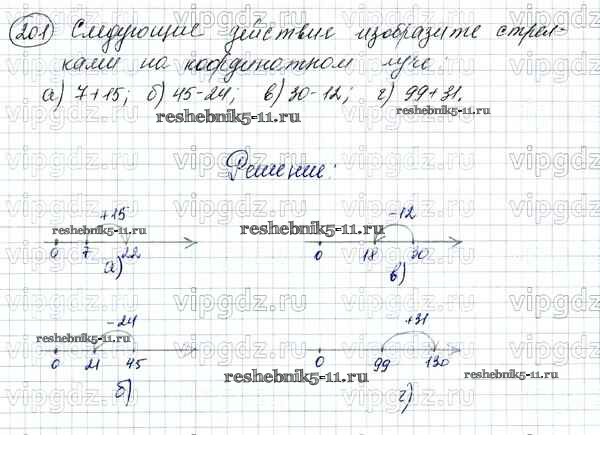 201 Следующие действие изобразите стрел-
ками на координатном луче:
а) 7+15; б) 45-24; в) 30-12; г) 99+31.
reshebnik5-11.ru reshebnik5-11.ru
Решение:
+15 -12
reshebnik5-11.ru reshebnik5-11.ru
0 7 22 0 18 30
а) в)
-24 +31
reshebnik5-11.ru
0 21 45 0 99 130
reshebnik5-11.ru reshebnik5-11.ru
б) г)
vipgdz.ru vipgdz.ru vipgdz.ru vipgdz.ru